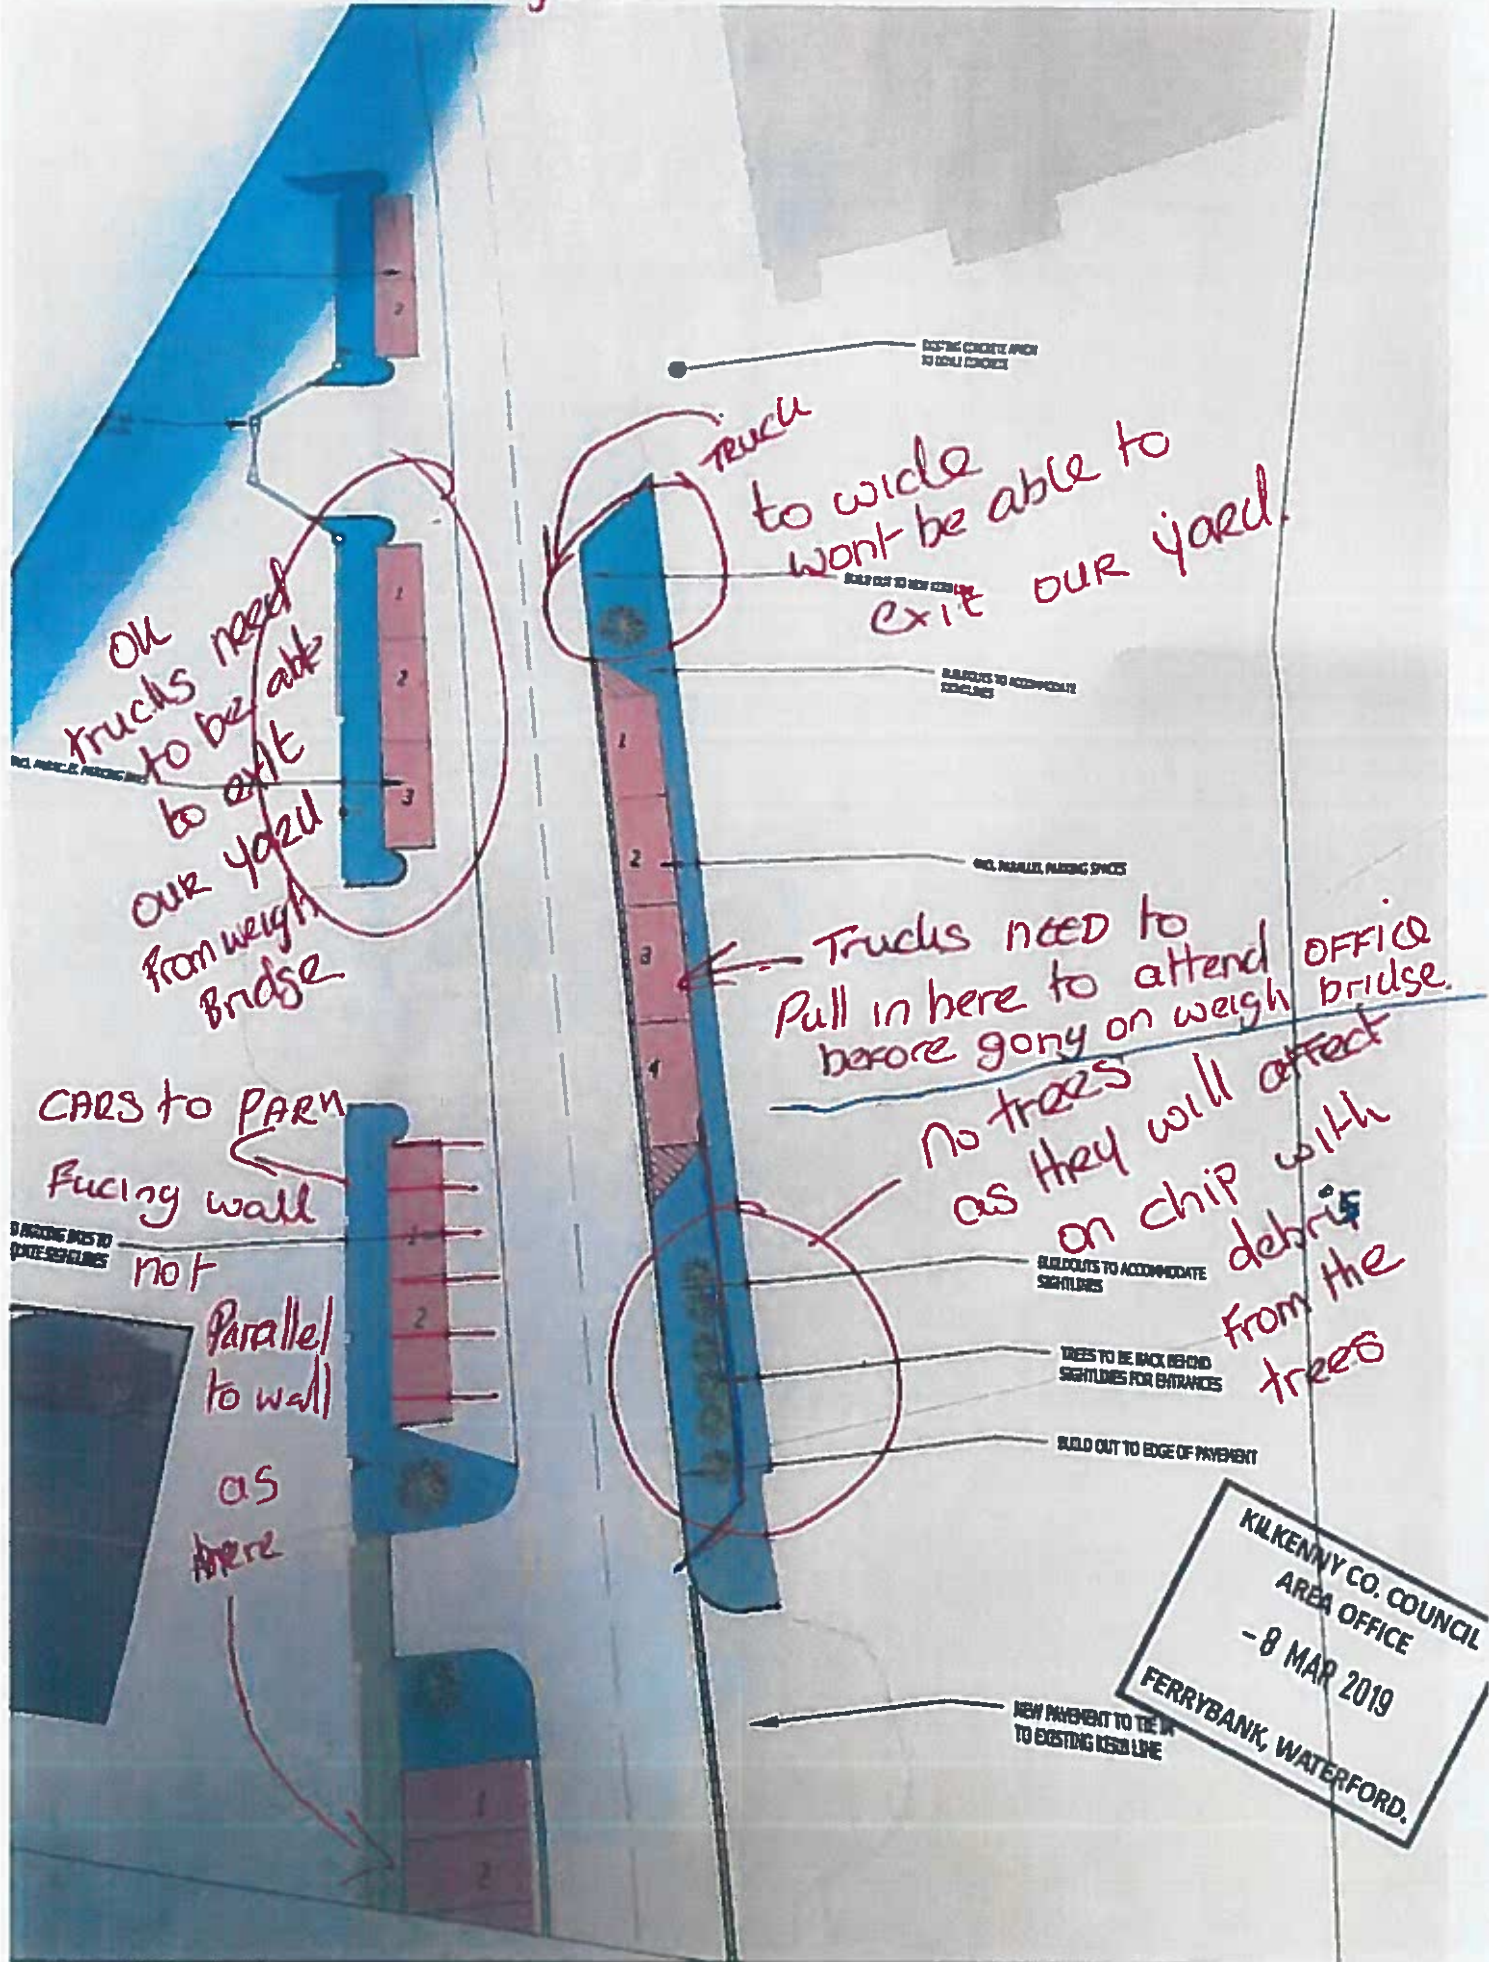 2
EXISTING CONCRETE APRON
TRUCK
to wide
wont be able to
exit OUR yard.
BUILD OUT TO NEW KERB LINE
BUILDOUTS TO ACCOMMODATE
SIGHTLINES
1
2
3
OK
trucks need
to be able
to exit
OUR YARD
From weigh
Bridge
INCL PARALLEL PARKING BAYS
1
2
3
4
INCL PARALLEL PARKING SPACES
Trucks NEED to
Pull in here to attend OFFICE
before gony on weigh bridge.
No trees
as they will affect
on chip with
debris
From the
trees
CARS to PARK
Facing wall
not
Parallel
to wall
as
here
PARKING BAYS TO
SIGHTLINES
1
2
BUILDOUTS TO ACCOMMODATE
SIGHTLINES
TREES TO BE BACK BEHIND
SIGHTLINES FOR ENTRANCES
BUILD OUT TO EDGE OF PAVEMENT
NEW PAVEMENT TO TIE IN
TO EXISTING KERB LINE
1
2
KILKENNY CO. COUNCIL
AREA OFFICE
-8 MAR 2019
FERRYBANK, WATERFORD.